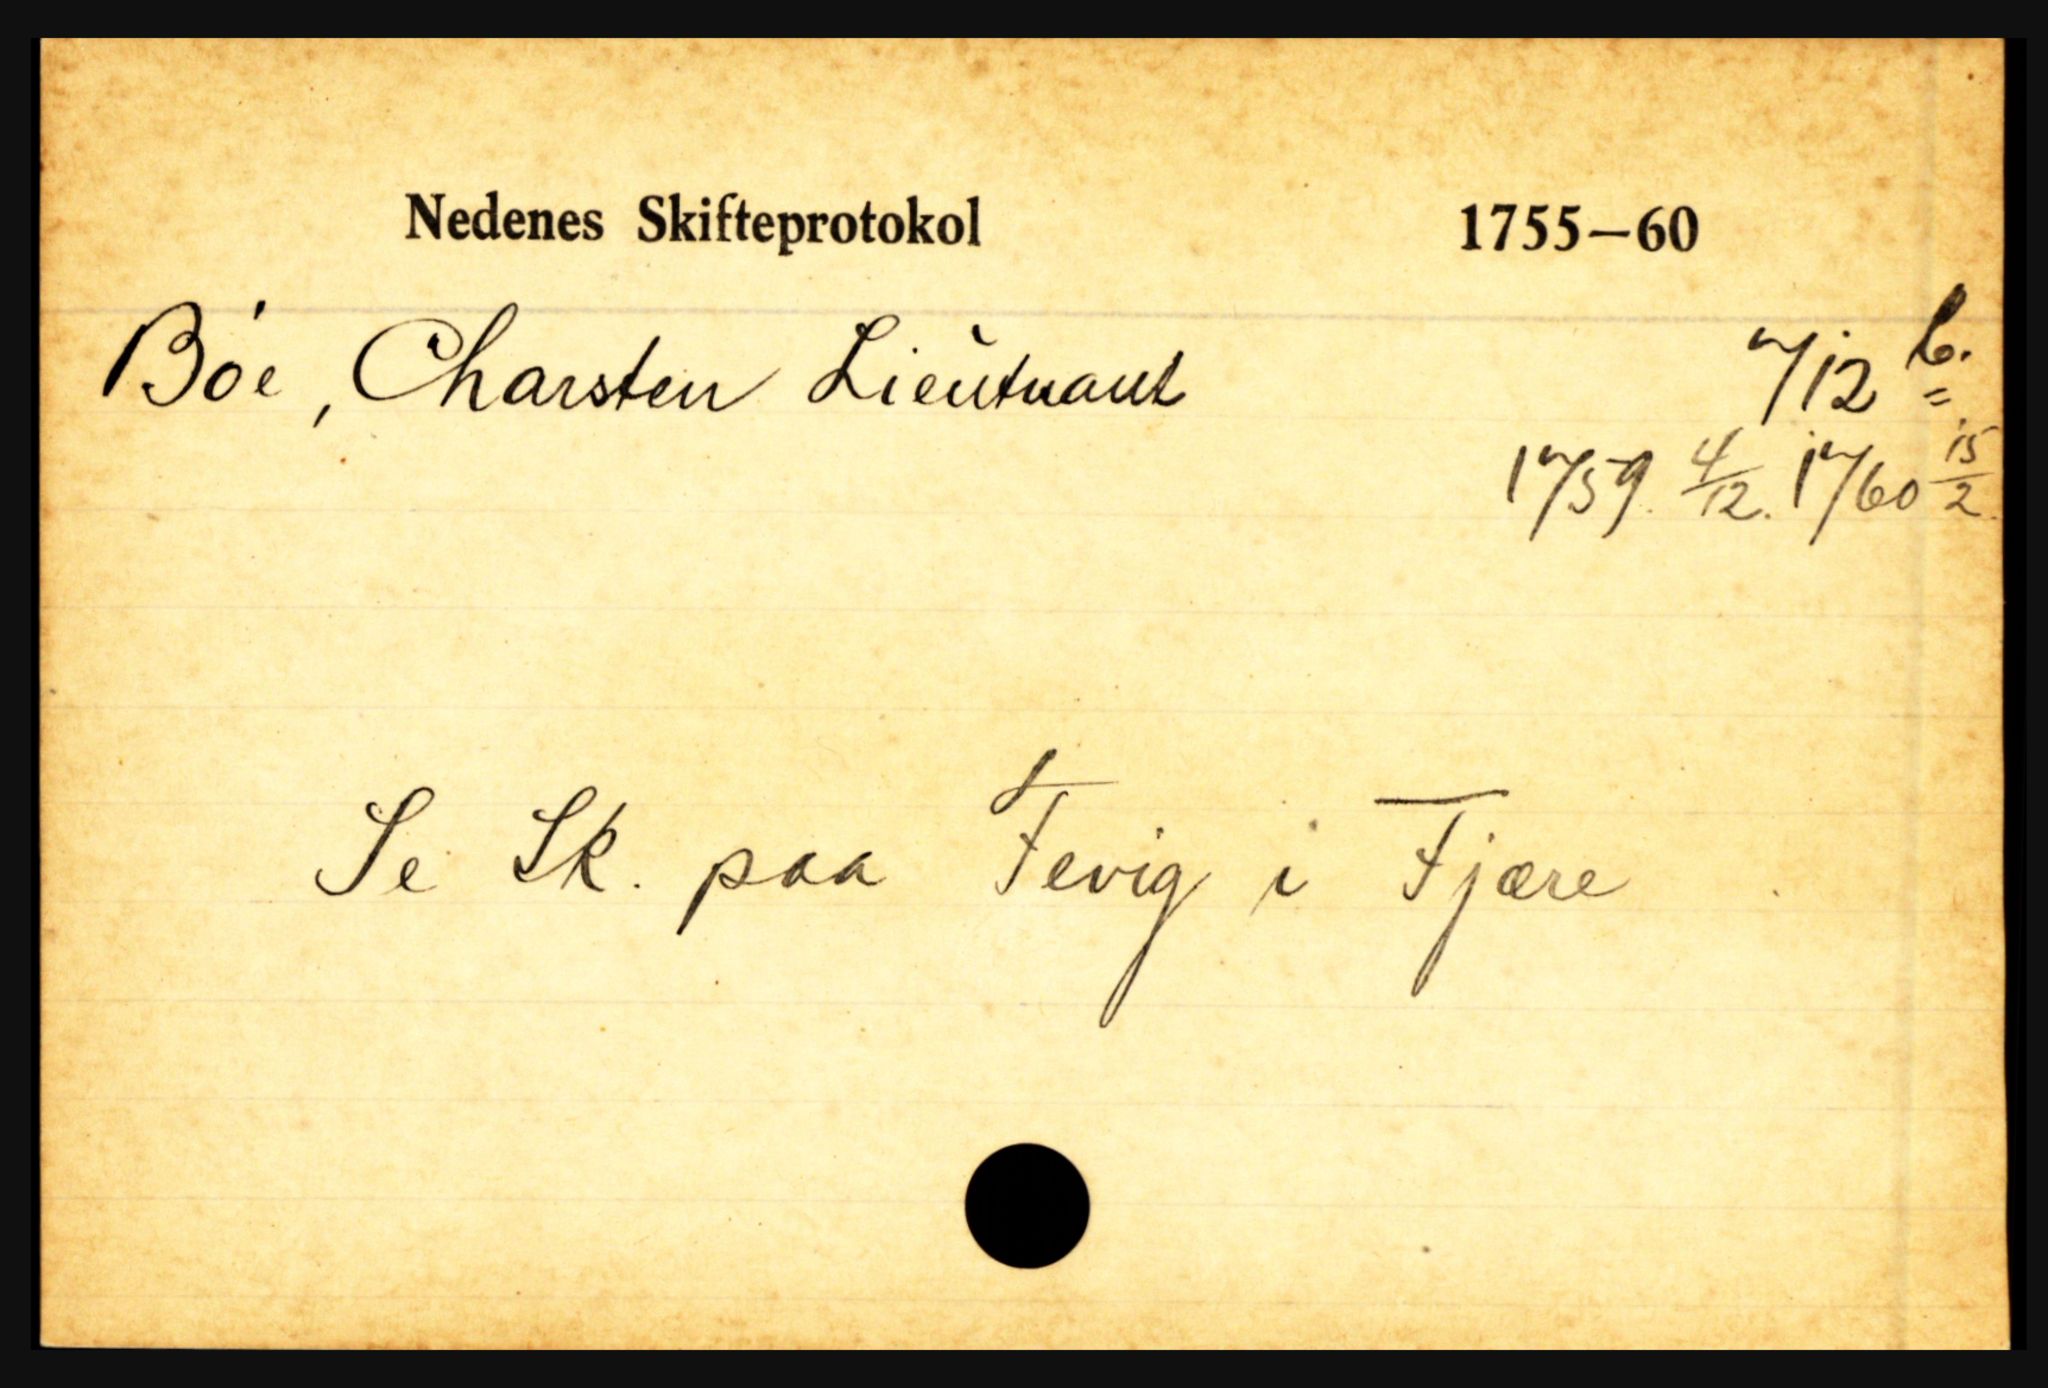 Nedenes Skifteprotokol 1755—60
Bóe, Charsten Lieutnant 712 b.
1759 4/12. 1760 15/2.
Se Sk. paa Fevig i Fjære